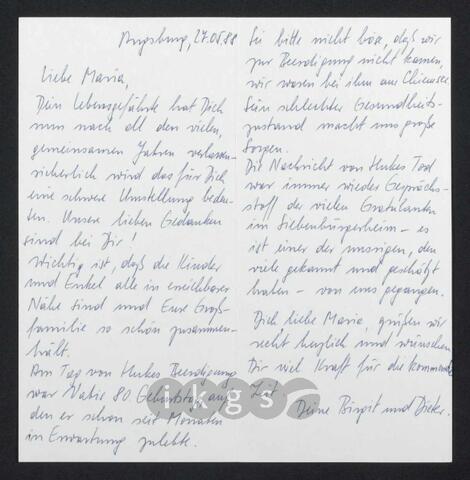 Augsburg, 27.05.88
Liebe Maria,
Dein Lebensgefährte hat Dich
nun nach all den vielen,
gemeinsamen Jahren verlassen.
sicherlich wird das für Dich
eine schwere Umstellung bedeu-
ten. Unsere lieben Gedanken
sind bei Dir!
Wichtig ist, daß die Kinder
und Enkel alle in erreichbarer
Nähe sind und Eure Groß-
familie so schön zusammen-
hält.
Am Tag von Heikes Beerdigung
war 80. Geburtstag, auf
den er schon seit Monaten
in Erwartung zulebte.
Sei bitte nicht böse, daß wir
zur Beerdigung nicht kamen,
wir waren bei ihm am Chiemsee.
Sein schlechter Gesundheits-
zustand macht uns große
Sorgen.
Die Nachricht von Tod
war immer wieder Gesprächs-
stoff der vielen Gratulanten
im Siebenbürgerheim - es
ist einer der unsrigen, den
viele gekannt und geschätzt
haben - von uns gegangen.
Dich liebe Maria, grüßen wir
recht herzlich und wünschen
Dir viel Kraft für die kommende
Zeit
Deine Birgit und Dieter.
ikgs